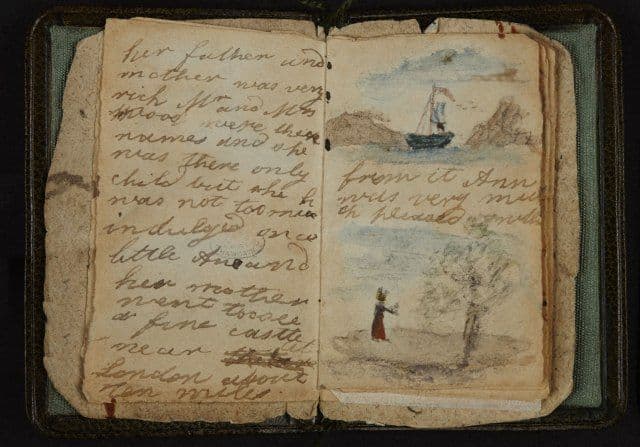 her father and
mother was very
rich Mr and Mrs
Wood were there
names and she
was there only
child but she
was not too
indulged once
little Ane and
her mother
went to see
a fine castle
near
London about
ten miles
from it Ann
was very mu
ch pleased with